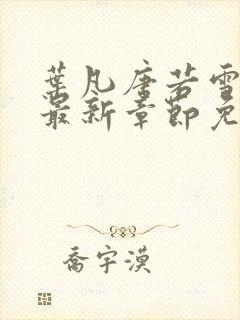 葉凡唐若雪
最新章節免
喬宇漠